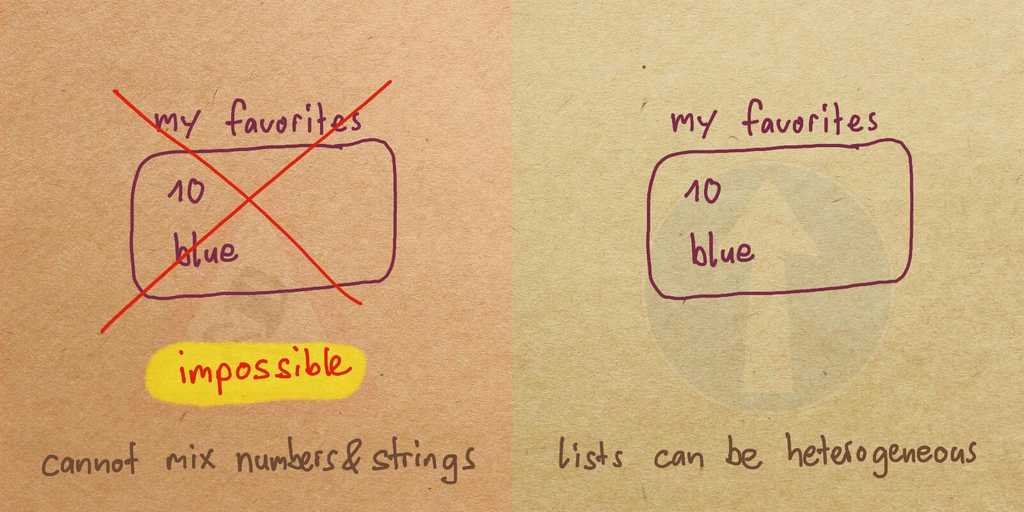 my favorites
10
blue
impossible
cannot mix numbers & strings
my favorites
10
blue
lists can be heterogeneous